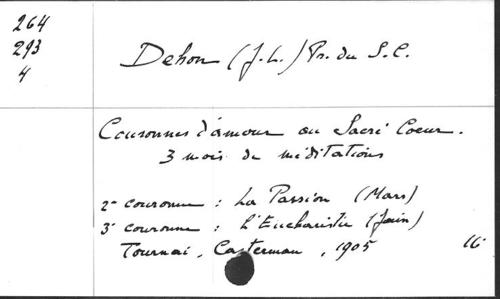 264
293
4
Dehon (J.L.) Pr. du S.C.
Couronnes d'amour au Sacré Coeur.
3 mois de méditations
2e couronne : La Passion (Mars)
3e couronne : L'Eucharistie (Juin)
Tournai, Casterman, 1905 16°